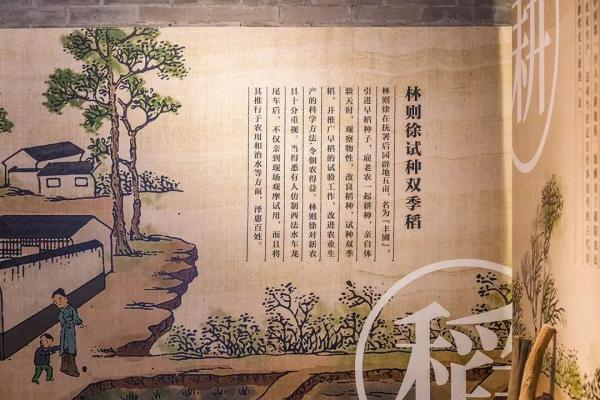 耕
林则徐试种双季稻
林则徐在抚署后园辟地五亩，名为『丰圃』，
引进早稻种子，雇老农一起耕种，亲自体
验天时，观察物性，改良稻种，试种双季
稻，并推广早稻的试验工作，改进农业生
产的科学方法，令佃农得益。林则徐对新农
具十分重视。当得悉有人仿制西法水车龙
尾车后，不仅亲到现场观摩试用，而且将
其推行于农用和治水等方面，泽惠百姓。
稻